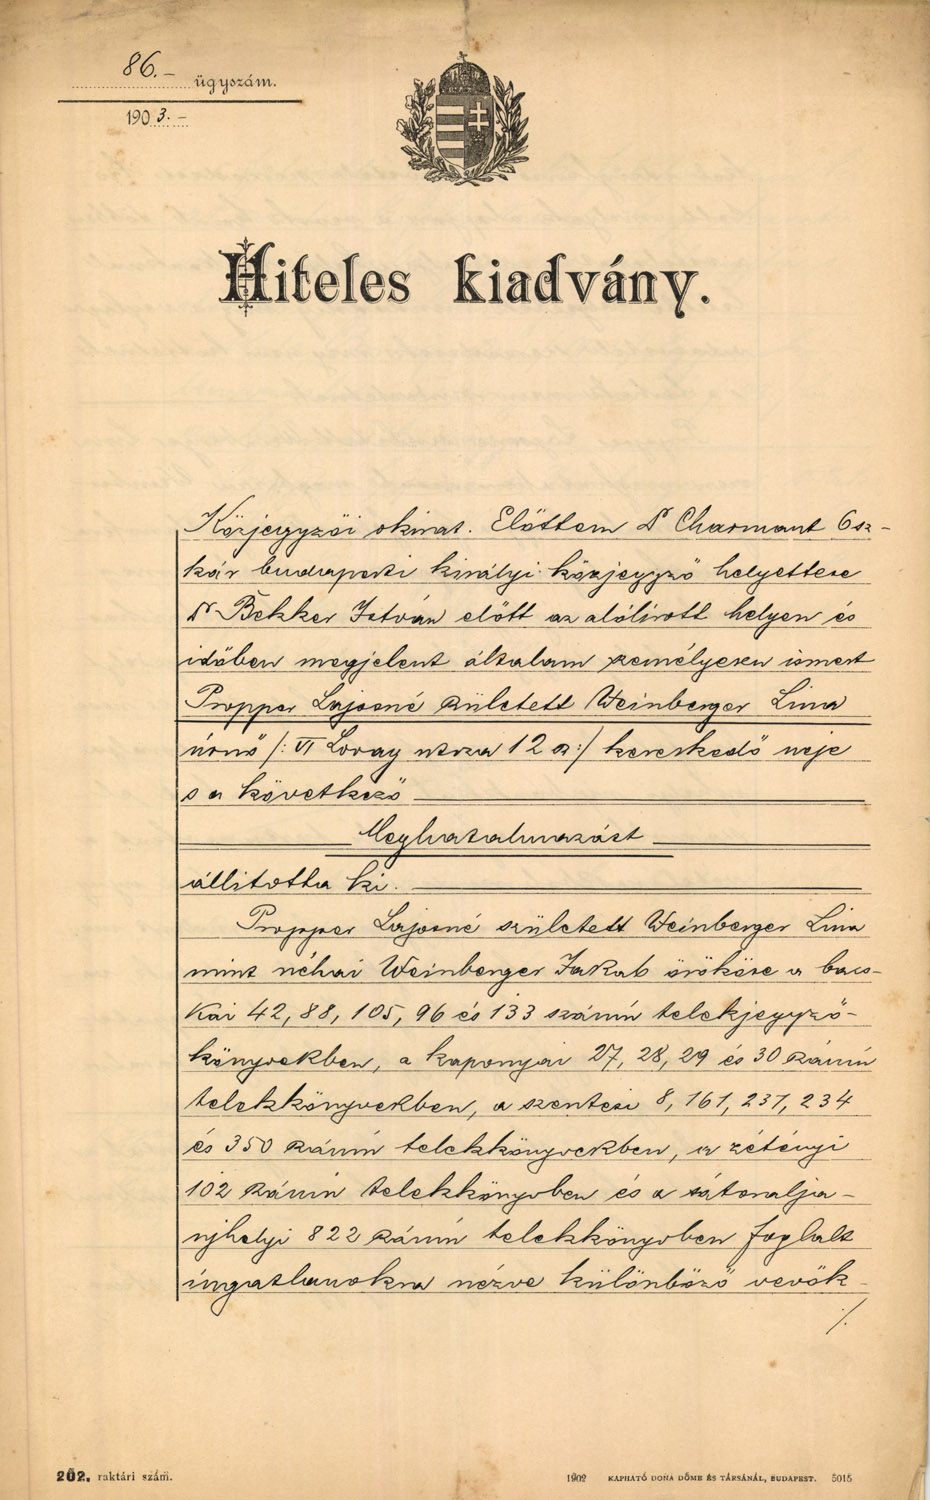 86.- ügyszám.
1903.-
Hiteles kiadvány.
Közjegyzői okirat. Előttem Dr Charmant Osz-
kár budapesti királyi közjegyző helyettese
Dr Bekker István előtt az alólirott helyen és
időben megjelent általam személyesen ismert
Propper Lajosné született Weinberger Lina
úrnő /: VI Lovag utcza 12 sz:/ kereskedő neje
s a következő
Meghatalmazást
állitotta ki.
Propper Lajosné született Weinberger Lina
mint néhai Weinberger Jakab örököse a bacs-
kai 42, 88, 105, 96 és 133 számú telekjegyző-
könyvekben, a kaponyai 27, 28, 29 és 30 számú
telekkönyvekben, a szentesi 8, 161, 231, 234
és 350 számú telekkönyvekben, a zétényi
102 számú telekkönyvben és a sátoralja-
ujhelyi 822 számú telekkönyvben foglalt
ingatlanokra nézve különböző vevők-
/.
202. raktári szám.
1902 KAPHATÓ DONA DÖME ÉS TÁRSÁNÁL, BUDAPEST. 5015